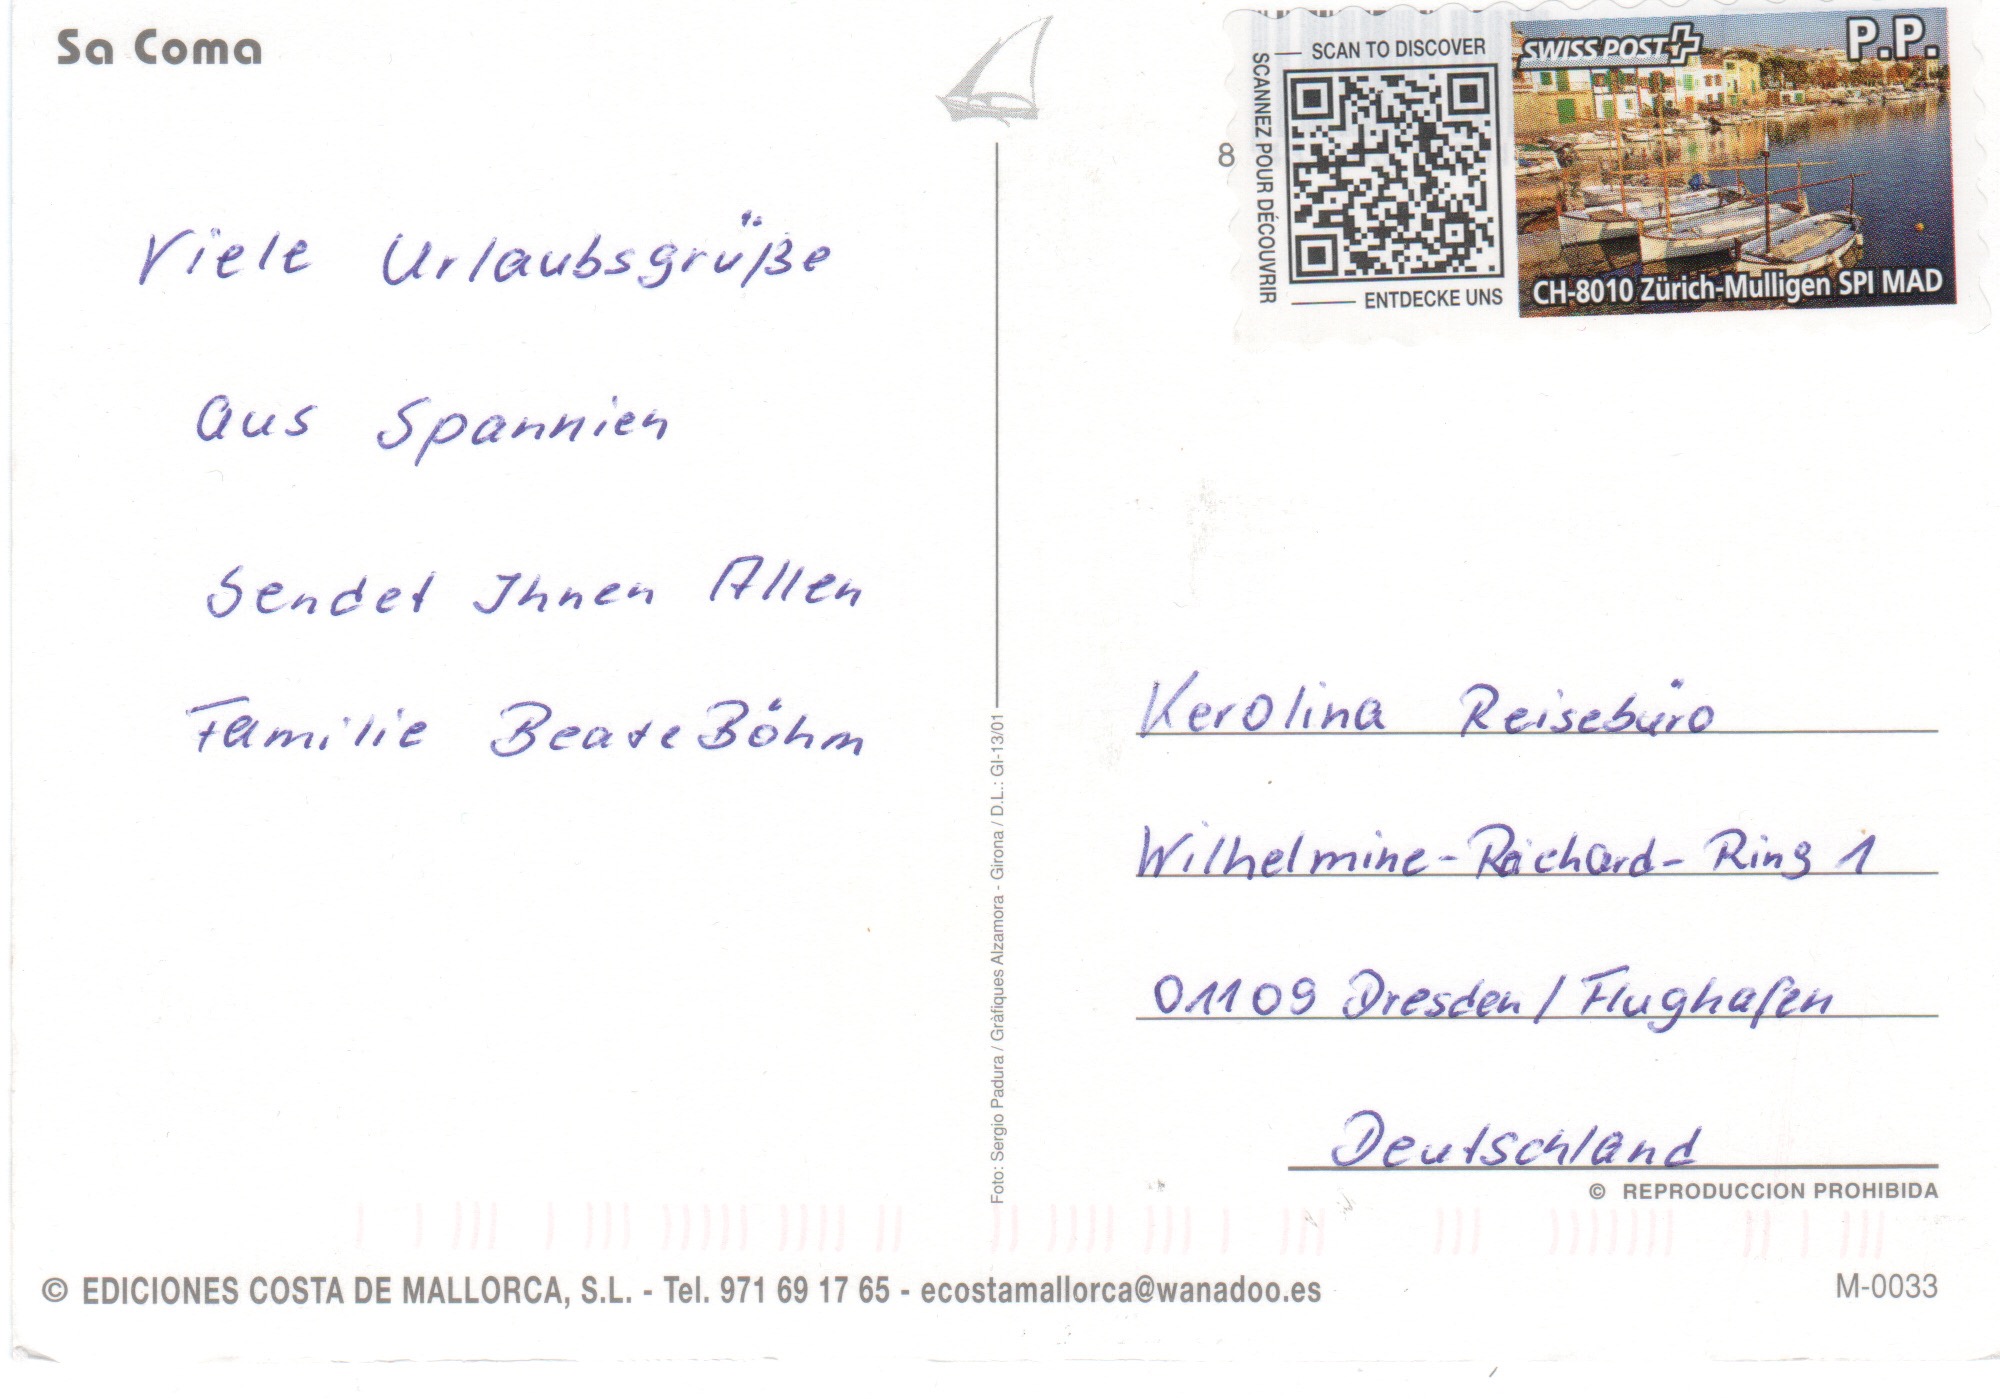 Sa Coma
Viele Urlaubsgrüße
aus Spannien
Sendet Ihnen Allen
Familie Beate Böhm
SCAN TO DISCOVER
SCANNEZ POUR DÉCOUVRIR
ENTDECKE UNS
8
SWISS POST
P.P.
CH-8010 Zürich-Mulligen SPI MAD
Kerolina Reisebüro
Wilhelmine-Reichard-Ring 1
01109 Dresden/Flughafen
Deutschland
© REPRODUCCION PROHIBIDA
Foto: Sergio Padura / Gràfiques Alzamora - Girona / D.L.: GI-13/01
© EDICIONES COSTA DE MALLORCA, S.L. - Tel. 971 69 17 65 - ecostamallorca@wanadoo.es
M-0033